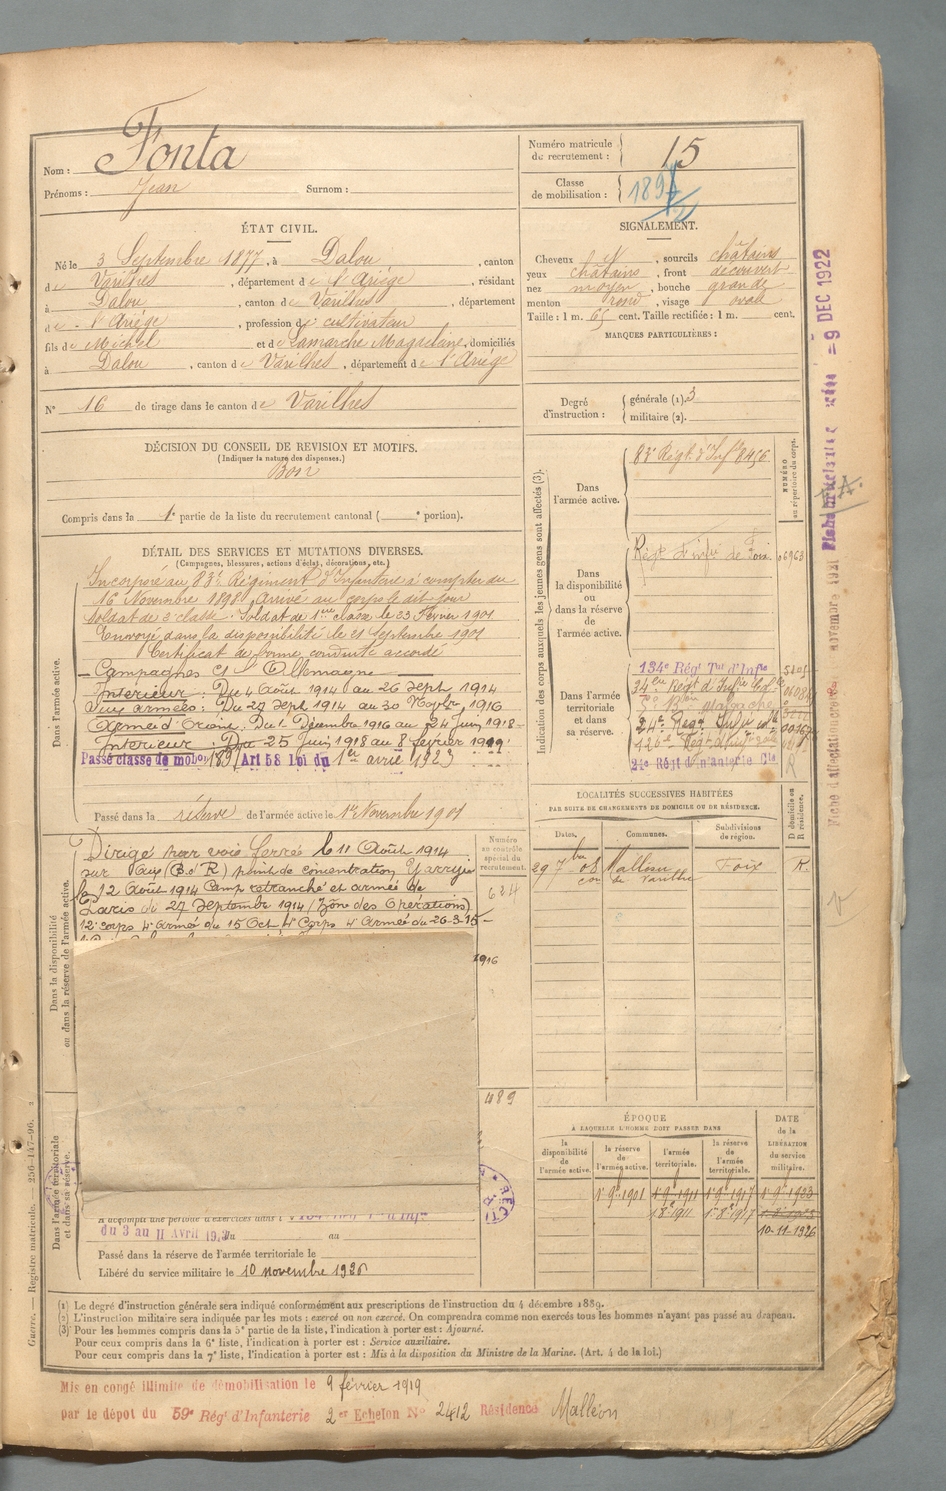 Nom : Fonta
Prénoms : Jean Surnom :
Numéro matricule du recrutement : 15
Classe de mobilisation : 189
ÉTAT CIVIL.
Né le 3 Septembre 1877, à Dalou, canton
de Varilhes, département de l'Ariège, résidant
à Dalou, canton de Varilhes, département
de l'Ariège, profession de cultivateur
fils de Michel et de Lamarche Magdelaine, domiciliés
à Dalou, canton de Varilhes, département de l'Ariège
N° 16 de tirage dans le canton de Varilhes
SIGNALEMENT.
Cheveux N, sourcils châtains
yeux châtains, front découvert
nez moyen, bouche grande
menton rond, visage ovale
Taille : 1 m. 65 cent. Taille rectifiée : 1 m. cent.
MARQUES PARTICULIÈRES :
Degré d'instruction : générale (1). 3
militaire (2).
DÉCISION DU CONSEIL DE REVISION ET MOTIFS.
(Indiquer la nature des dispenses.)
Bon
Compris dans la 1e partie de la liste du recrutement cantonal ( e portion).
DÉTAIL DES SERVICES ET MUTATIONS DIVERSES.
(Campagnes, blessures, actions d'éclat, décorations, etc.)
Dans l'armée active.
Incorporé au 83e Régiment d'Infanterie à compter du
16 Novembre 1898. Arrivé au corps le dit jour
soldat de 2e classe. Soldat de 1ere classe le 23 Février 1901
Envoyé dans la disponibilité le 21 Septembre 1901
Certificat de bonne conduite accordé
Campagnes Ct l'Allemagne
Intérieur : Du 4 Août 1914 au 26 Sept 1914
Aux armées : Du 27 Sept 1914 au 30 Novbre 1916
Armée d'Orient : Du 1 Décembre 1916 au 24 Juin 1918
Intérieur : Du 25 Juin 1918 au 8 février 1919.
Passé classe de mobon 189 Art 58 Loi du 1er avril 1923
Passé dans la réserve de l'armée active le 1er Novembre 1901
Dans la disponibilité ou dans la réserve de l'armée active.
Dirigé par voie ferrée le 11 Août 1914
sur (B.d R) point de concentration
le 12 Août 1914 Camp retranché et armée de
Paris du 27 Septembre 1914 (Zône des Opérations)
12e corps 4e Armée du 15 Oct 4e Corps 4e Armée du 26-3-15
1916
Numéro au contrôle spécial du recrutement.
634
489
Dans l'armée territoriale et dans sa réserve.
A accompli une période d'exercices dans l
du 3 au 11 Avril 19 Du au
Passé dans la réserve de l'armée territoriale le
Libéré du service militaire le 10 novembre 1926
Indication des corps auxquels les jeunes gens sont affectés (3).
NUMÉRO au répertoire du corps.
Dans l'armée active.
83e Régt d'Inf 8456
Dans la disponibilité ou dans la réserve de l'armée active.
Régt d'infie de Foix 06963
Dans l'armée territoriale et dans sa réserve.
134e Régt Tal d'Infie
34eme Régt d'Infie Cole
24e Régt Infie
24e Régt d'infanterie Cle
R
LOCALITÉS SUCCESSIVES HABITÉES
PAR SUITE DE CHANGEMENTS DE DOMICILE OU DE RÉSIDENCE.
Dates. Communes. Subdivisions de région. D domicile ou R résidence.
29 7 08 Malléon Foix R.
con de Varilhes
ÉPOQUE
A LAQUELLE L'HOMME DOIT PASSER DANS
la disponibilité de l'armée active.
la réserve de l'armée active.
l'armée territoriale.
la réserve de l'armée territoriale.
DATE de la LIBÉRATION du service militaire.
1er 9bre 1901 1er 9bre 1911 1er 9bre 1917 1er 9bre 1923
10-11-1926
Fiche d'affectation novembre 1921
-9 DEC 1922
Guerre. — Registre matricule. — 256-147-96.
(1) Le degré d'instruction générale sera indiqué conformément aux prescriptions de l'instruction du 4 décembre 1889.
(2) L'instruction militaire sera indiquée par les mots : exercé ou non exercé. On comprendra comme non exercés tous les hommes n'ayant pas passé au drapeau.
(3) Pour les hommes compris dans la 5e partie de la liste, l'indication à porter est : Ajourné.
Pour ceux compris dans la 6e liste, l'indication à porter est : Service auxiliaire.
Pour ceux compris dans la 7e liste, l'indication à porter est : Mis à la disposition du Ministre de la Marine. (Art. 4 de la loi.)
Mis en congé illimité de démobilisation le 9 février 1919
par le dépôt du 59e Régt d'Infanterie 2er Echelon N° 2412 Résidence Malléon